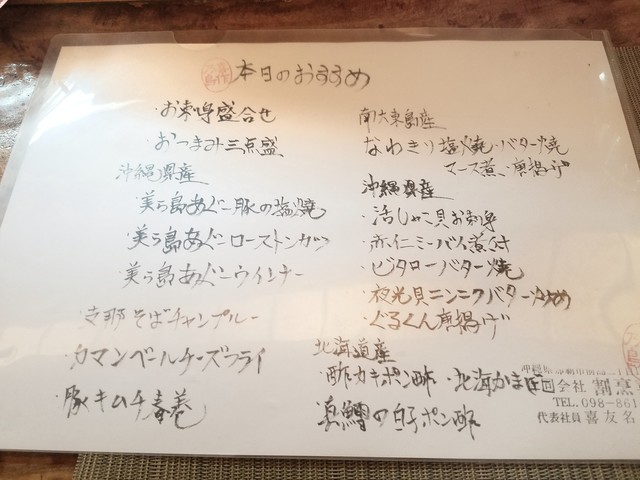 本日のおすすめ
・お刺身盛合せ
・おつまみ三点盛
沖縄県産
・美ら島あぐー豚の塩焼
・美ら島あぐーローストンカツ
・美ら島あぐーウインナー
・支那そばチャンプルー
・カマンベールチーズフライ
・豚キムチ春巻
南大東島産
なわきり塩焼・バター焼
マース煮・唐揚げ
沖縄県産
・活しゃこ貝お刺身
・赤仁ミーバイ煮付
・ビタローバター焼
・夜光貝ニンニクバター炒め
・ぐるくん唐揚げ
北海道産
・酢カキポン酢・北海かま
真鱈の白子ポン酢
会社 割烹
TEL.098-861
代表社員 喜友名